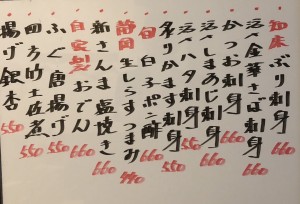 知床 ぶり刺身 660
活〆金華さば刺身 660
かつお刺身 660
活〆しまあじ刺身 660
活〆ハタ刺身 550
炙りかます刺身
旬 白子ポン酢 660
静岡 生しらすつまみ 440
新さんま塩焼き 660
自家製 おでん 660
ふぐ唐揚げ 550
四方竹土佐煮 550
揚げ銀杏 550